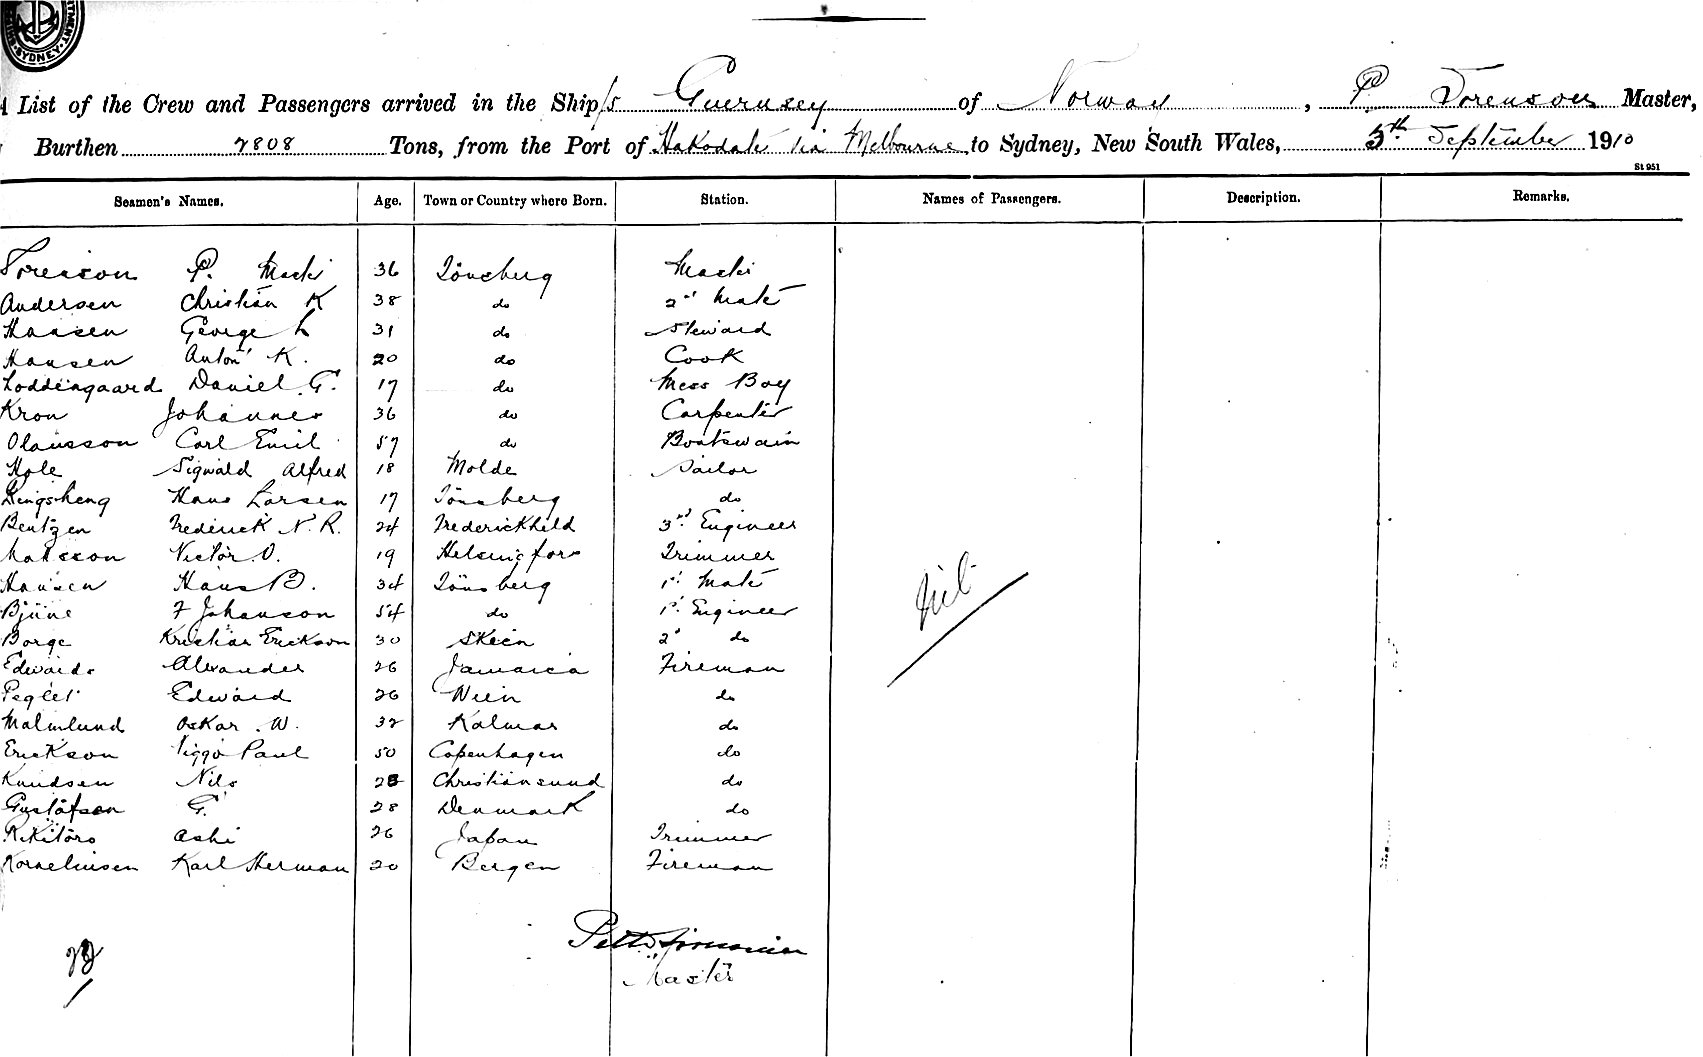 SYDNEY
List of the Crew and Passengers arrived in the Ship s/s Guernsey of Norway, P. Sorenson Master,
Burthen 2808 Tons, from the Port of Hakodate via Melbourne to Sydney, New South Wales, 5th September 1910
St 951
Seamen's Names. Age. Town or Country where Born. Station. Names of Passengers. Description. Remarks.
P. 36 Tönsberg
Andersen Christian K 38 do 2nd Mate
Hansen George L 31 do Steward
Hansen Anton K. 20 do Cook
Loddengaard Daniel G. 17 do Mess Boy
Kron Johannes 36 do Carpenter
Olausson Carl Emil 57 do Boatswain
Hole Sigwald Alfred 18 Molde Sailor
Hans Larsen 17 Tönsberg do
Bentzen Frederick N. R. 24 Frederickheld 3rd Engineer
Victor O. 19 Helsingfors Trimmer
Hansen Hans B. 34 Tönsberg 1st Mate
Bjüne F Johanson 54 do 1st Engineer
Borge Kristian Erickson 30 Skien 2nd do
Edwards Alexander 26 Jamaica Fireman
Edward 26 Wien do
Malmlund Oskar W. 32 Kalmar do
Erickson Viggo Paul 50 Copenhagen do
Knudsen Nils 28 Christiansund do
Gustafson G. 28 Denmark do
Rikitaro Ashi 26 Japan Trimmer
Korneliusen Karl Herman 20 Bergen Fireman
Nil
Master